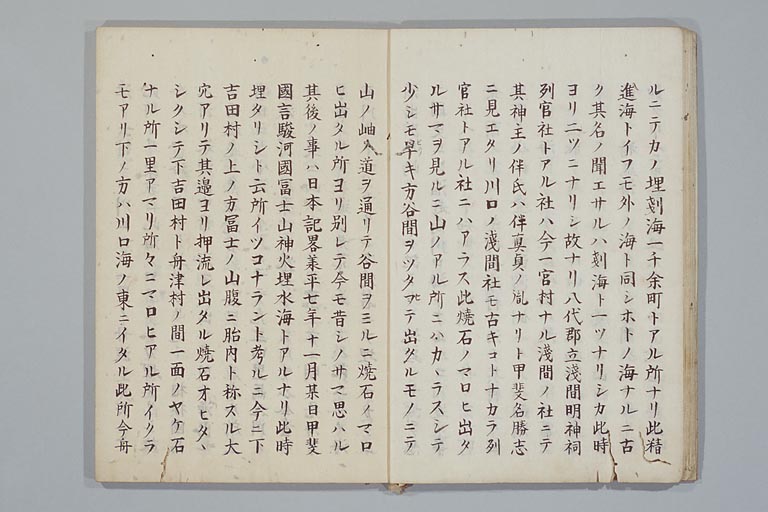 ルニテカノ埋剗海一千余町トアル所ナリ此稭
進海トイフモ外ノ海ト同シホトノ海ナルニ古
ク其名ノ聞エサルハ剗海ト一ツナリシカ此時
ヨリ二ツニナリシ故ナリ八代郡立淺間明神祠
列官社トアル社ハ今一宮村ナル淺間ノ社ニテ
其神主ノ伴氏ハ伴真貞ノ胤ナリト甲斐名勝志
ニ見エタリ川口ノ淺間社モ古キコトナカラ列
官社トアル社ニハアラス此焼石ノマロヒ出タ
ルサマヲ見ルニ山ノアル所ニハカヽラスシテ
少シモ早キ方谷間ヲツタヒテ出タルモノニテ
山ノ岫ノ道ヲ通リテ谷間ヲミルニ焼石ノマロ
ヒ出タル所ヨリ別レテ今モ昔シノサマ思ハル
其後ノ事ハ日本記畧羕平七年十一月某日甲斐
國言駿河國冨士山神火埋水海トアルナリ此時
埋タリシト云所イツコナラント考ルニ今ニ下
吉田村ノ上ノ方冨士ノ山腹ニ胎内ト称スル大
穴アリテ其邉ヨリ押流レ出タル焼石オヒタヽ
シクシテ下吉田村ト舟津村ノ間一面ノヤケ石
ナル所一里アマリ所々ニマロヒアル所イクラ
モアリ下ノ方ハ川口海ノ東ニイタル此所今舟